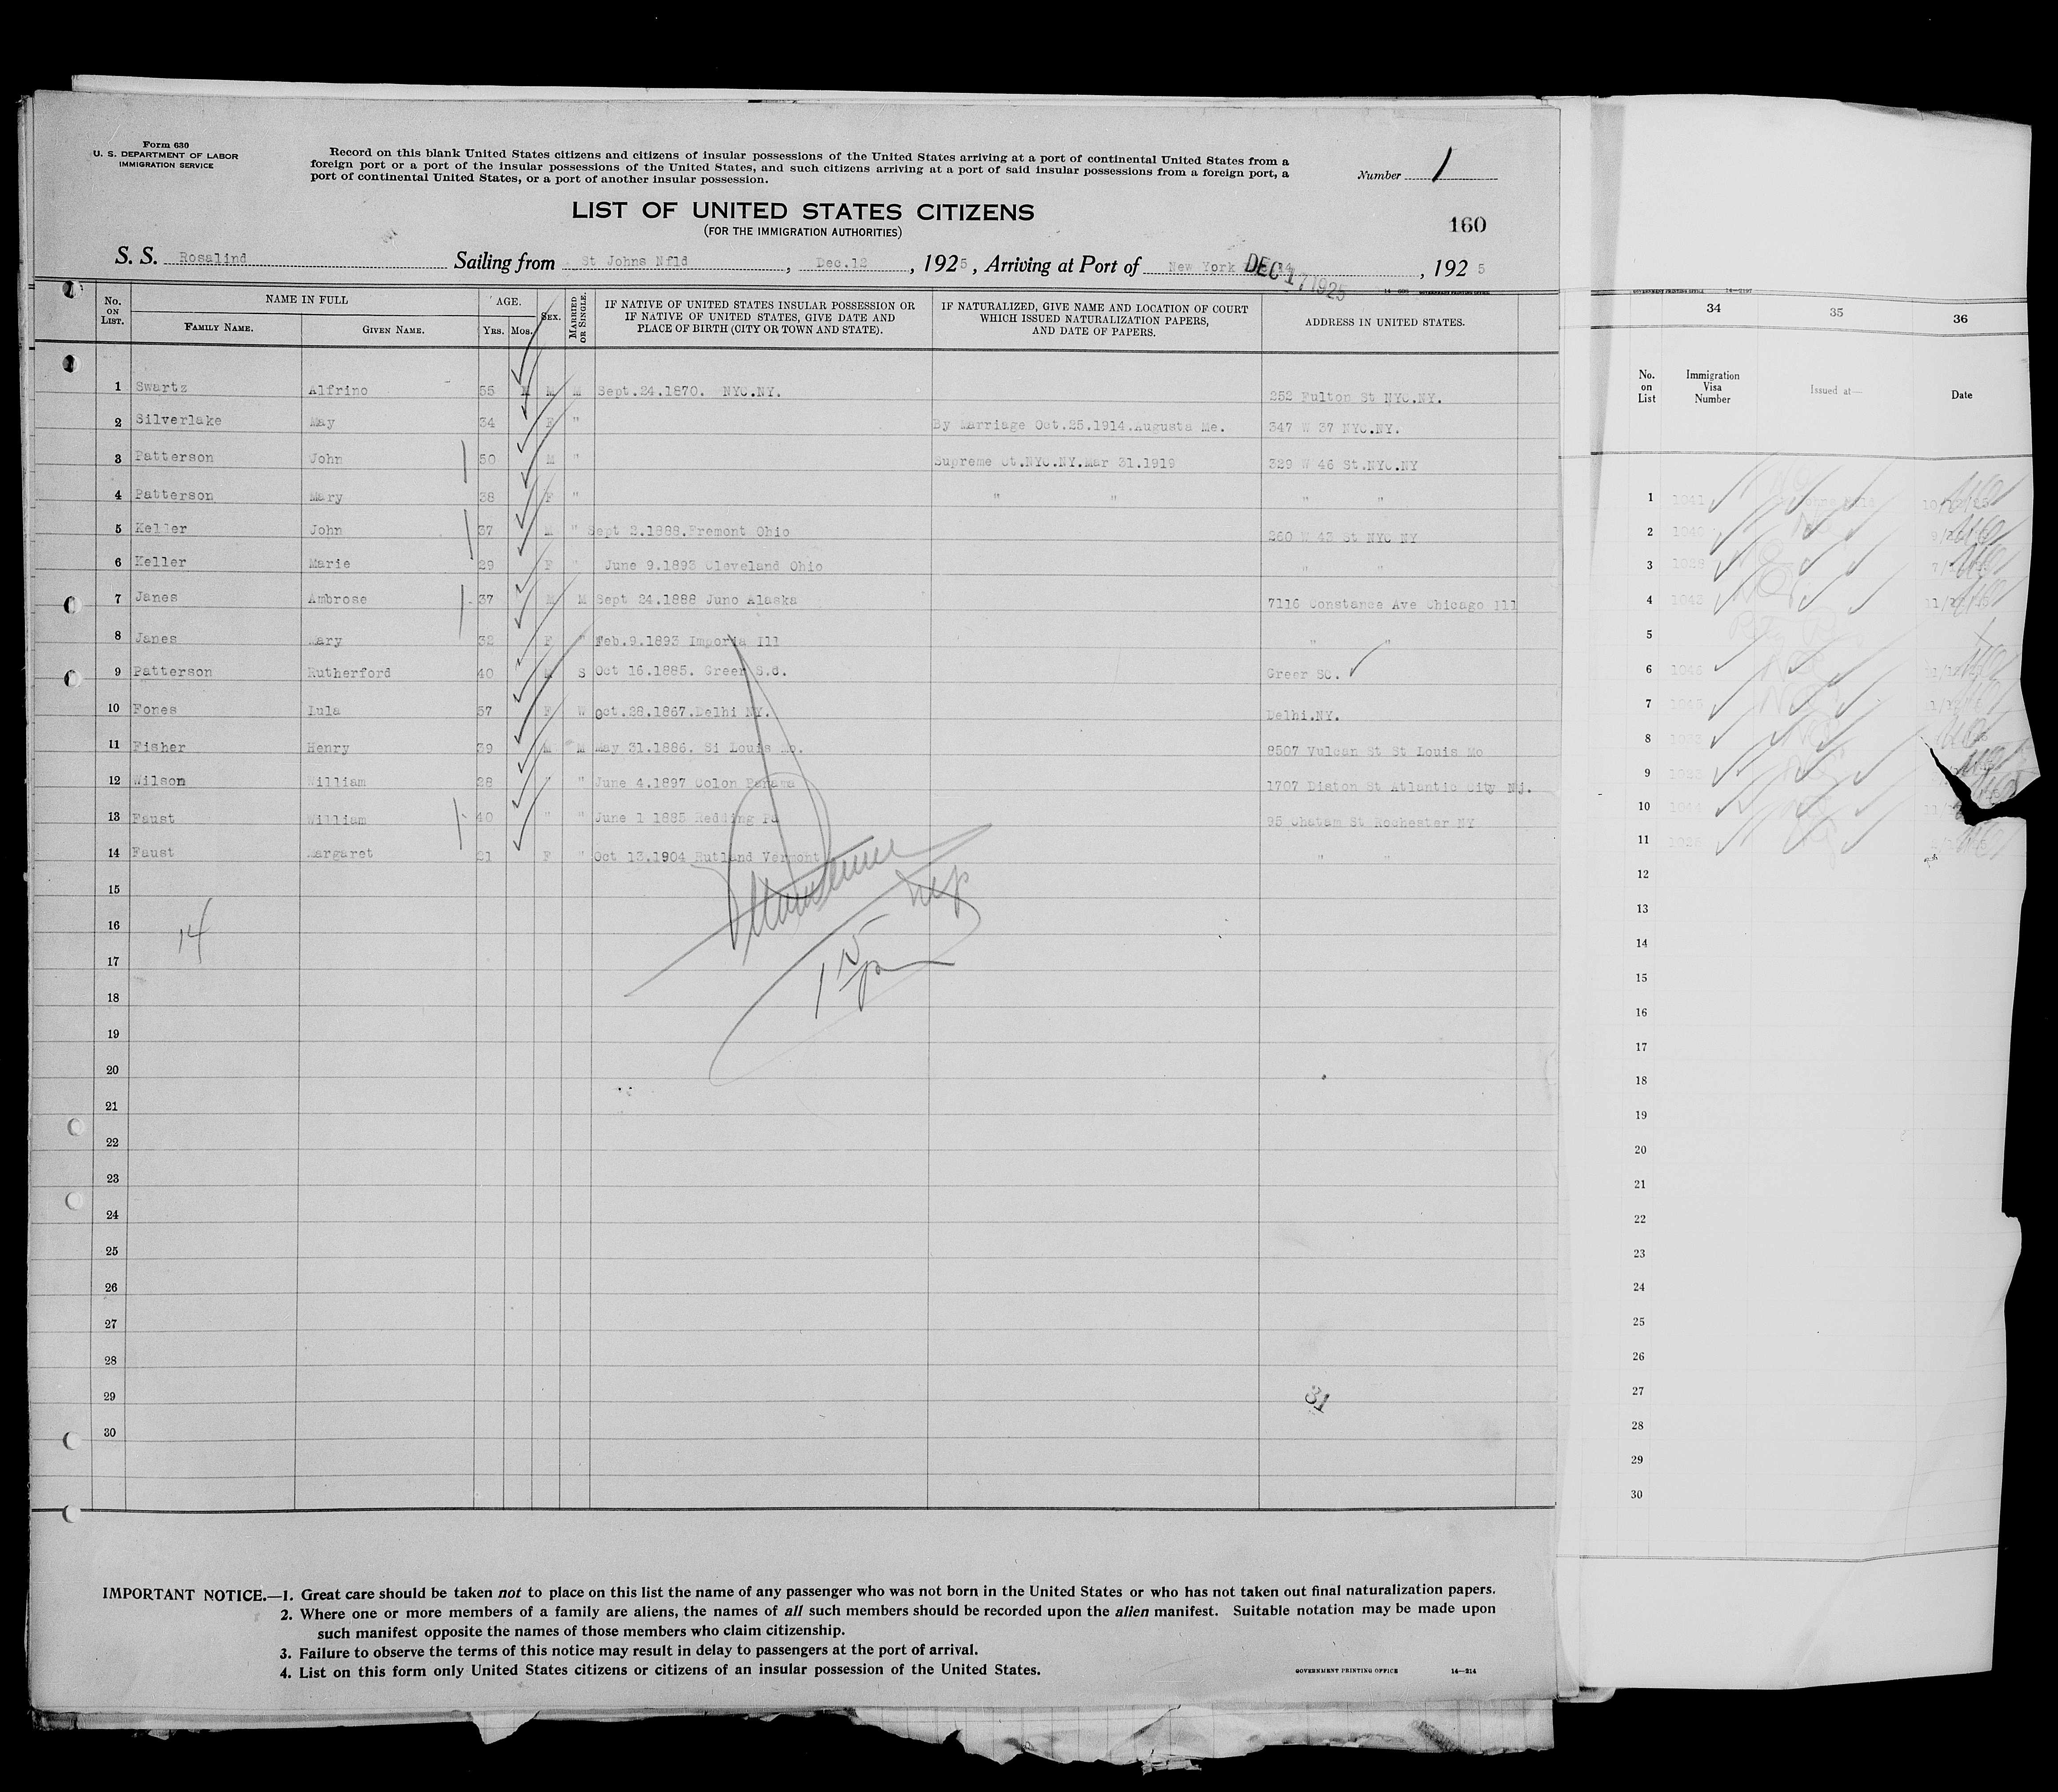 Form 630
U. S. DEPARTMENT OF LABOR
IMMIGRATION SERVICE
Record on this blank United States citizens and citizens of insular possessions of the United States arriving at a port of continental United States from a
foreign port or a port of the insular possessions of the United States, and such citizens arriving at a port of said insular possessions from a foreign port, a
port of continental United States, or a port of another insular possession.
Number 1
LIST OF UNITED STATES CITIZENS
(FOR THE IMMIGRATION AUTHORITIES)
160
S. S. Rosalind Sailing from St Johns Nfld, Dec.12, 1925, Arriving at Port of New York DEC 17 1925, 1925
No. ON LIST. NAME IN FULL AGE. SEX. MARRIED OR SINGLE. IF NATIVE OF UNITED STATES INSULAR POSSESSION OR IF NATIVE OF UNITED STATES, GIVE DATE AND PLACE OF BIRTH (CITY OR TOWN AND STATE). IF NATURALIZED, GIVE NAME AND LOCATION OF COURT WHICH ISSUED NATURALIZATION PAPERS, AND DATE OF PAPERS. ADDRESS IN UNITED STATES.
FAMILY NAME. GIVEN NAME. YRS. MOS.
1 Swartz Alfrino 55 M M Sept.24.1870. NYC.NY. 252 Fulton St NYC.NY.
2 Silverlake May 34 F " By Marriage Oct.25.1914.Augusta Me. 347 W 37 NYC.NY.
3 Patterson John 50 M " Supreme Ct.NYC.NY.Mar 31.1919 329 W 46 St.NYC.NY
4 Patterson Mary 38 F " " " " "
5 Keller John 37 M " Sept 2.1888.Fremont Ohio 260 W 43 St NYC NY
6 Keller Marie 29 F " June 9.1893 Cleveland Ohio " "
7 Janes Ambrose 37 M M Sept 24.1888 Juno Alaska 7116 Constance Ave Chicago Ill
8 Janes Mary 32 F " Feb.9.1893 Imporia Ill " "
9 Patterson Rutherford 40 M S Oct 16.1885. Greer S.d. Greer SC.
10 Fones Lula 57 F W Oct.28.1867.Delhi NY. Delhi.NY.
11 Fisher Henry 39 M M May 31.1886. Si Louis Mo. 8507 Vulcan St St Louis Mo
12 Wilson William 28 " " June 4.1897 Colon Panama 1707 Diston St Atlantic City Nj.
13 Faust William 40 " " June 1 1885 Redding Pa 95 Chatam St Rochester NY
14 Faust Margaret 21 F " Oct 13.1904 Rutland Vermont " "
15
16
14
17
18
19
20
21
22
23
24
25
26
27
28
29
31
30
IMPORTANT NOTICE.—1. Great care should be taken not to place on this list the name of any passenger who was not born in the United States or who has not taken out final naturalization papers.
2. Where one or more members of a family are aliens, the names of all such members should be recorded upon the alien manifest. Suitable notation may be made upon
such manifest opposite the names of those members who claim citizenship.
3. Failure to observe the terms of this notice may result in delay to passengers at the port of arrival.
4. List on this form only United States citizens or citizens of an insular possession of the United States.
GOVERNMENT PRINTING OFFICE 14—214
GOVERNMENT PRINTING OFFICE 14—2197
34 35 36
No. on List Immigration Visa Number Issued at— Date
1 1041
2
3
4
5
6
7
8
9
10
11
12
13
14
15
16
17
18
19
20
21
22
23
24
25
26
27
28
29
30